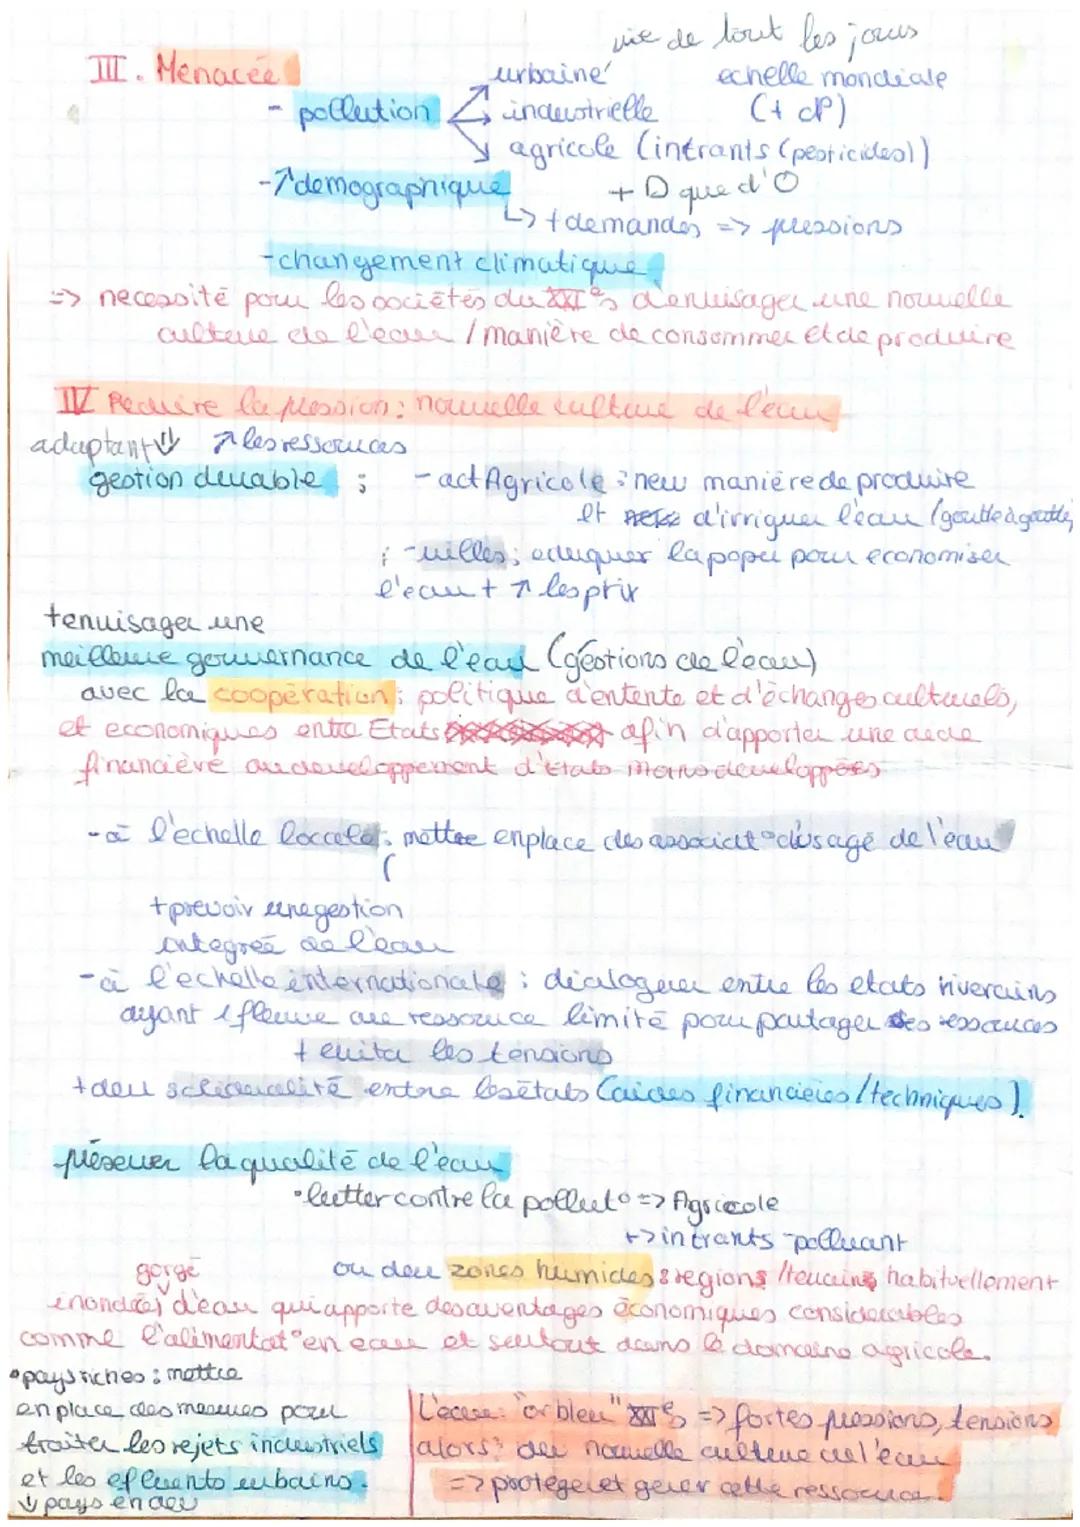 vie de tout les jours
III. Menacée
urbaine
echelle mondiale
- pollution
industrielle
(+ dP)
agricole (intrants (pesticides))
-↗ demographique
+ D que d'O
↳ + demandes => pressions
- changement climatique
=> necessité pour les sociétés du XXIe s d'envisager une nouvelle
culture de l'eau / manière de consommer et de produire
IV Réduire la pression : nouvelle culture de l'eau
adaptant ⇓ ↗ les ressources
gestion durable ; - act Agricole : new manière de produire
et d'irriguer l'eau (goutte à goutte)
; - villes ; eduquer la popu pour economiser
l'eau + ↗ les prix
+ envisager une
meilleure gouvernance de l'eau (gestions de l'eau)
avec la coopération : politique d'entente et d'échanges culturels,
et economiques entre Etats afin d'apporter une aide
financière au developpement d'états moins developpées
- à l'echelle locale : mettre en place des associat° d'usagé de l'eau
+ prevoir une gestion
integreé de l'eau
- à l'echelle internationale : dialoguer entre les etats riverains
ayant 1 fleuve ou ressource limité pour partager les ressources
+ evita les tensions
+ de la solidaralité entre les états (aides financieres / techniques).
préserver la qualité de l'eau
• lutter contre la pollut° => Agricole
+> intrants - polluant
gorgé
ou des zones humides : regions / terrains habituellement
inondées d'eau qui apporte des aventages économiques considerables
comme l'alimentat° en eau et surtout dans le domaine agricole.
• pays riches : mettre
en place des mesures pour
traiter les rejets industriels
et les effluents urbains.
⇓ pays en dev
L'eau : "or bleu" XXIe s => fortes pressions, tensions
alors : nouvelle culture de l'eau
=> protéger et gerer cette ressource.